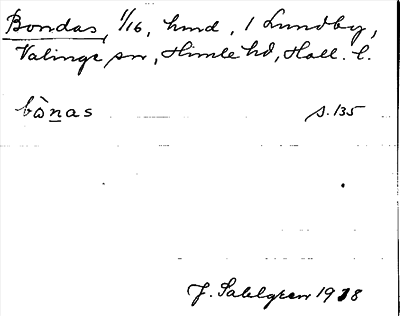 Bondas, 1/16, hmd, 1 Lundby,
Valinge sn, Himle hd, Hall. l.
bònas s.135
J. Sahlgren 1918